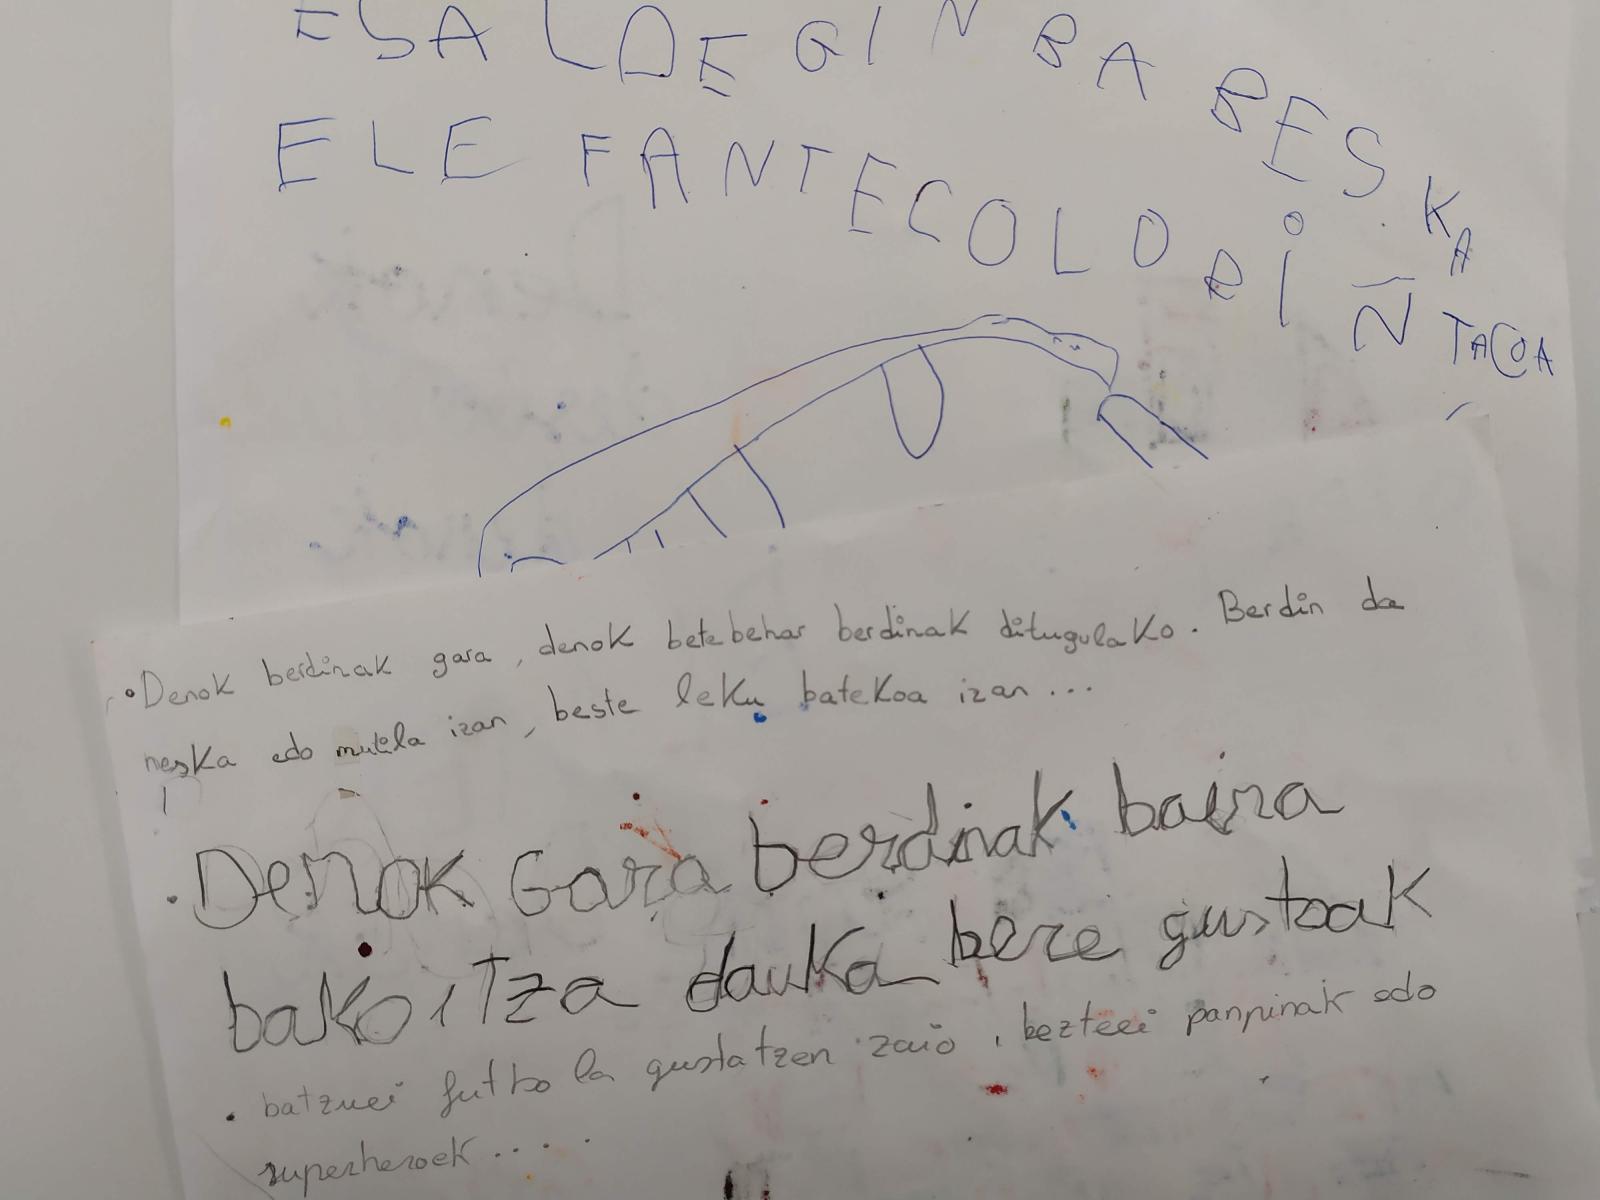 ESALDE GIN BA BES KA
ELE FANTE COLO RIÑ TACOA
• Denok berdinak gara, denok betebehar berdinak ditugulako. Berdin da
neska edo mutila izan, beste leku batekoa izan...
• Denok Gara berdinak baina
bakoitza dauka bere gustoak
• batzuei futbola gustatzen zaio, bezteei panpinak edo
superheroek ....